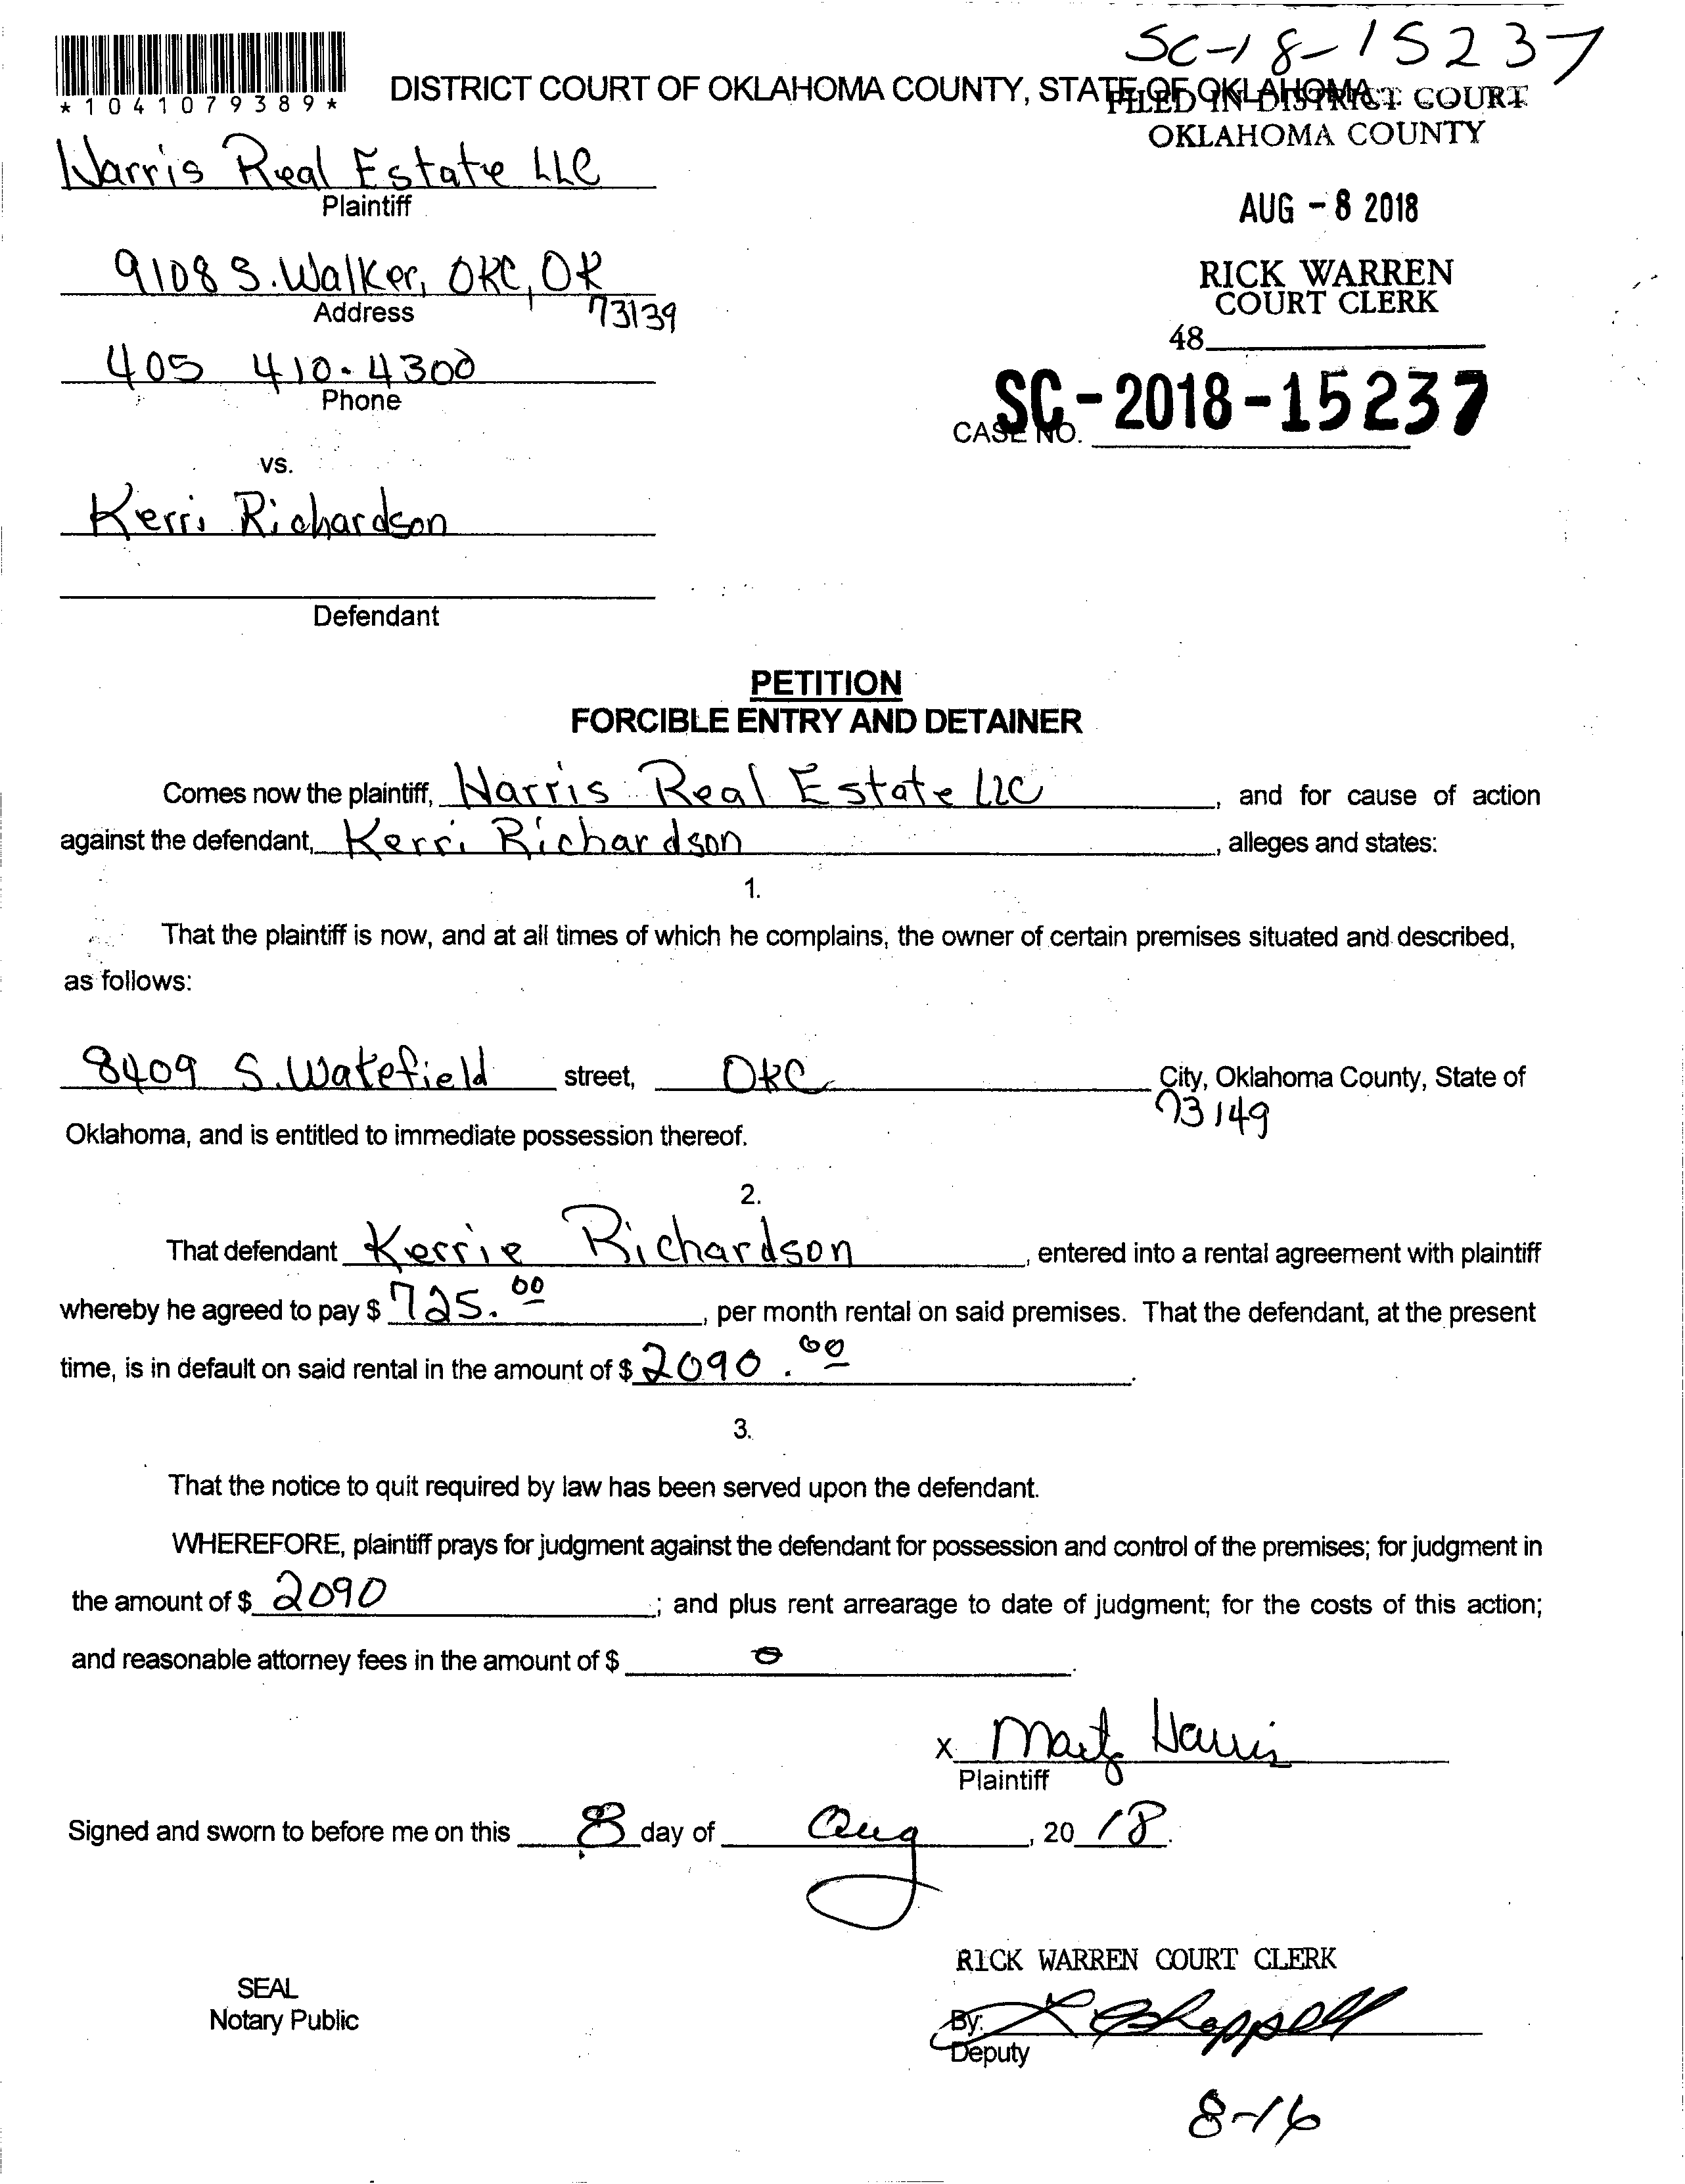 SC-18-15237
*1041079389*
DISTRICT COURT OF OKLAHOMA COUNTY, STATE OF OKLAHOMA
FILED IN DISTRICT COURT
OKLAHOMA COUNTY
Harris Real Estate LLC
Plaintiff
AUG - 8 2018
9108 S. Walker, OKC, OK
73139
Address
RICK WARREN
COURT CLERK
48
405 410-4300
Phone
CASE NO. SC-2018-15237
vs.
Kerri Richardson
Defendant
PETITION
FORCIBLE ENTRY AND DETAINER
Comes now the plaintiff, Harris Real Estate LLC, and for cause of action
against the defendant, Kerri Richardson, alleges and states:
1.
That the plaintiff is now, and at all times of which he complains, the owner of certain premises situated and described,
as follows:
8409 S. Watefield street, OKC City, Oklahoma County, State of
73149
Oklahoma, and is entitled to immediate possession thereof.
2.
That defendant Kerrie Richardson, entered into a rental agreement with plaintiff
whereby he agreed to pay $ 725.00, per month rental on said premises. That the defendant, at the present
time, is in default on said rental in the amount of $ 2090.00.
3.
That the notice to quit required by law has been served upon the defendant.
WHEREFORE, plaintiff prays for judgment against the defendant for possession and control of the premises; for judgment in
the amount of $ 2090; and plus rent arrearage to date of judgment; for the costs of this action;
and reasonable attorney fees in the amount of $ 0.
x Marty Harris
Plaintiff
Signed and sworn to before me on this 8 day of Aug, 2018.
RICK WARREN COURT CLERK
SEAL
Notary Public
By:
Deputy
8-16